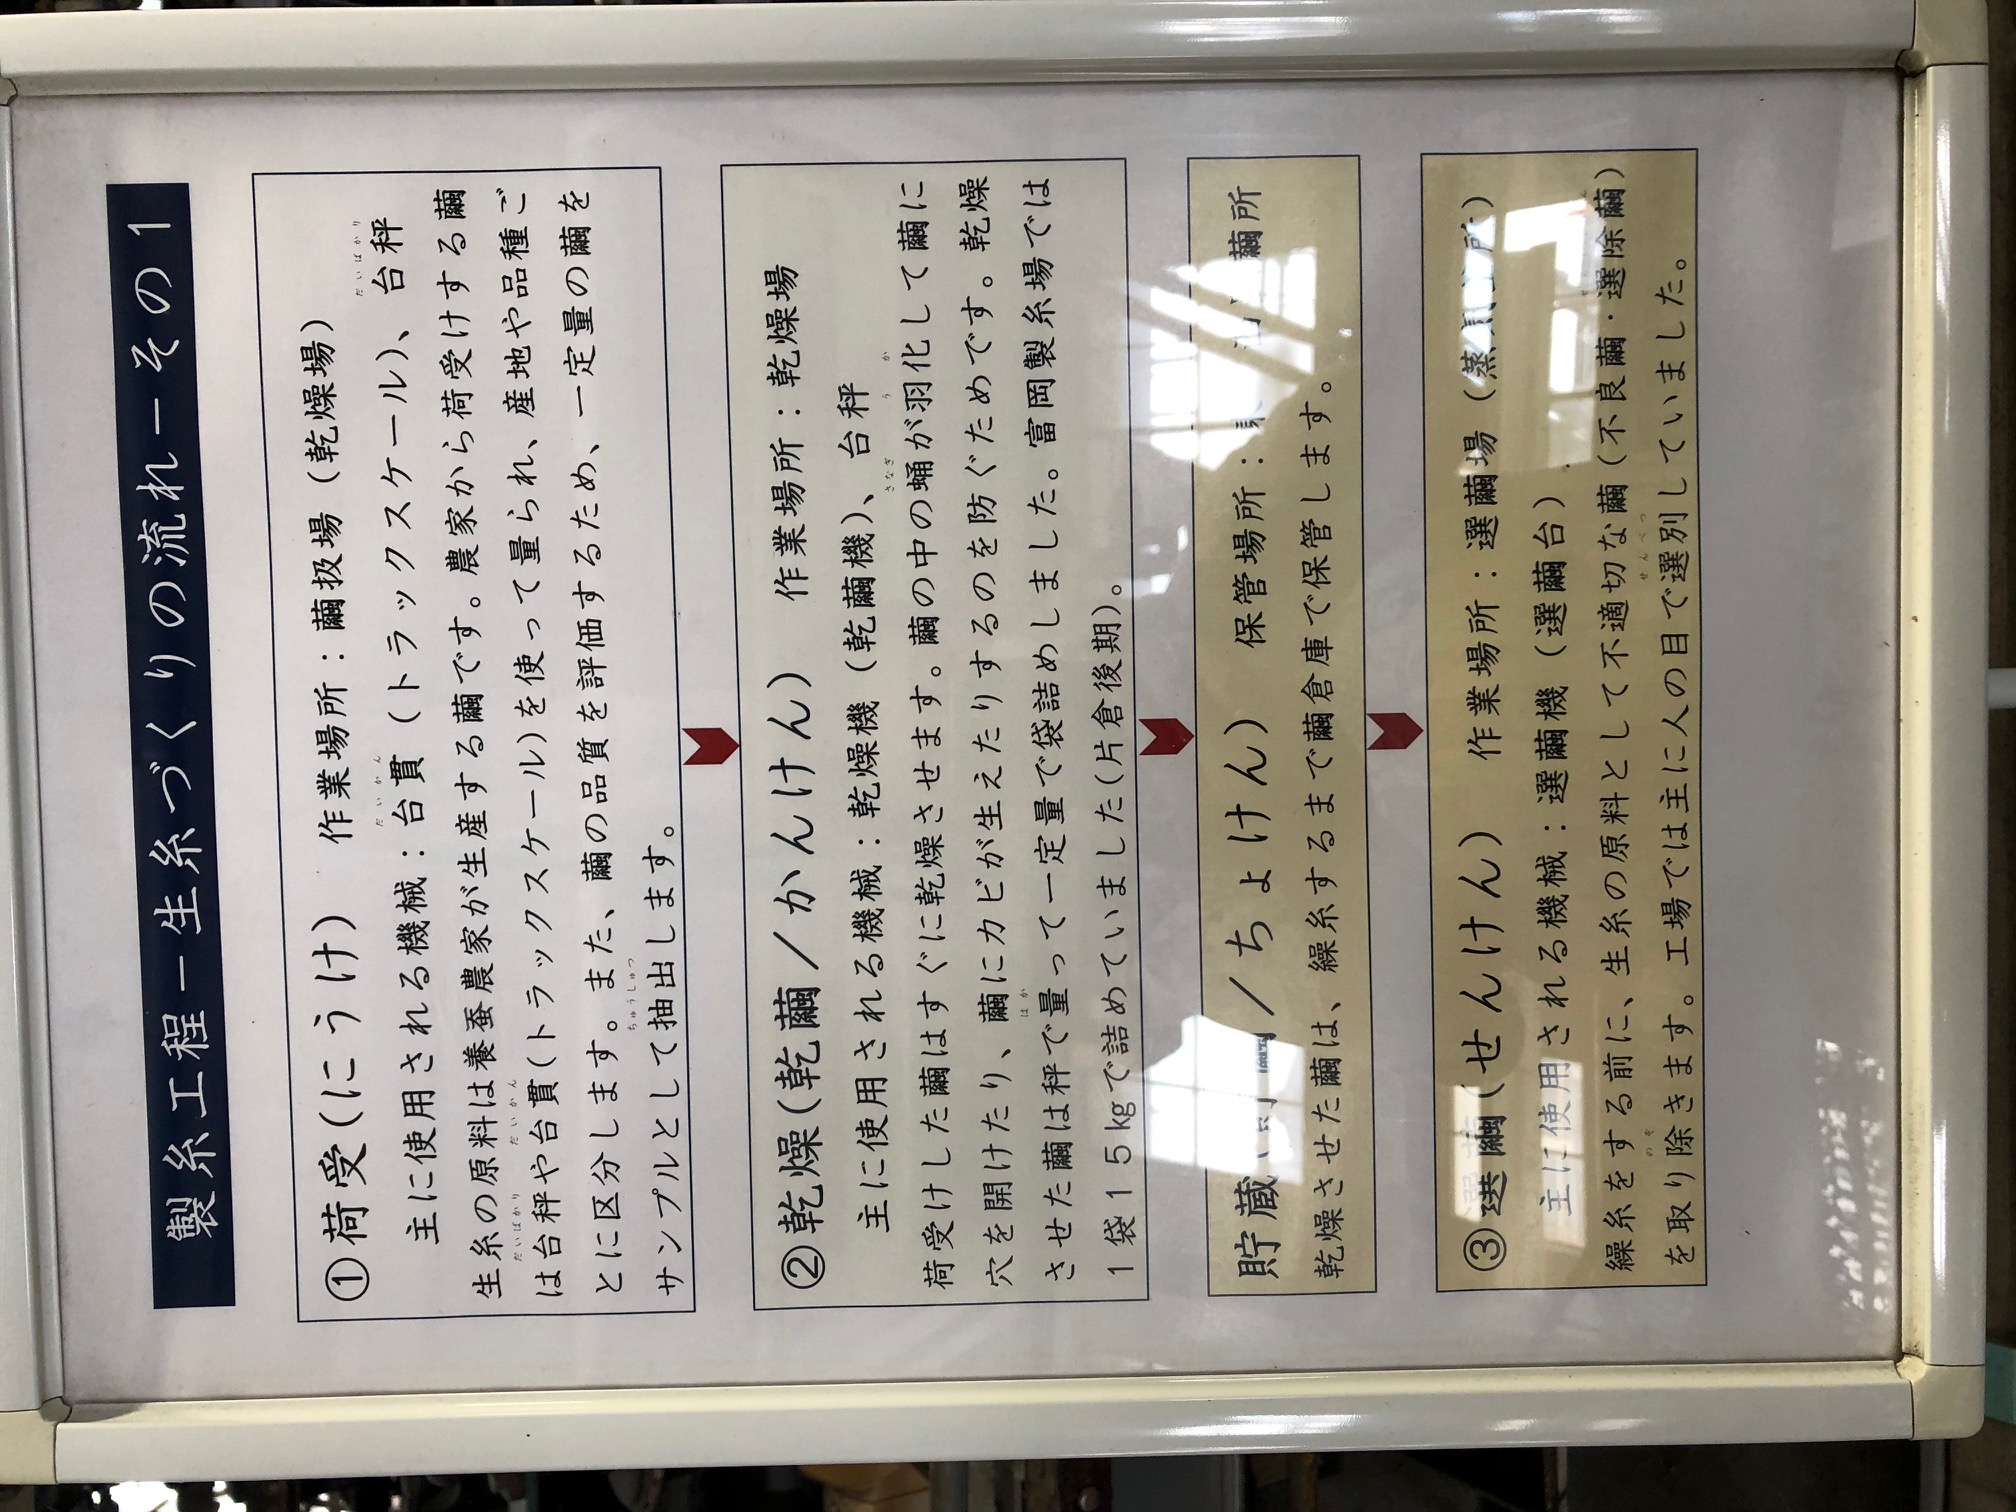 製糸工程－生糸づくりの流れ－その１
①荷受(にうけ)　作業場所：繭扱場（乾燥場）
主に使用される機械：台貫（トラックスケール）、台秤
だいかん
だいばかり
生糸の原料は養蚕農家が生産する繭です。農家から荷受けする繭
は台秤や台貫(トラックスケール)を使って量られ、産地や品種ご
だいばかり
だいかん
とに区分します。また、繭の品質を評価するため、一定量の繭を
サンプルとして抽出します。
ちゅうしゅつ
②乾燥(乾繭／かんけん)　作業場所：乾燥場
主に使用される機械：乾燥機（乾繭機）、台秤
荷受けした繭はすぐに乾燥させます。繭の中の蛹が羽化して繭に
さなぎ
うか
穴を開けたり、繭にカビが生えたりするのを防ぐためです。乾燥
させた繭は秤で量って一定量で袋詰めしました。富岡製糸場では
はか
１袋１５kgで詰めていました(片倉後期)。
貯蔵　繭／ちょけん)　保管場所：　繭所
乾燥させた繭は、繰糸するまで繭倉庫で保管します。
③選繭(せんけん)　作業場所：選繭場（蒸　所）
主に使用される機械：選繭機（選繭台）
繰糸をする前に、生糸の原料として不適切な繭(不良繭・選除繭)
を取り除きます。工場では主に人の目で選別していました。
のぞ
せんべつ